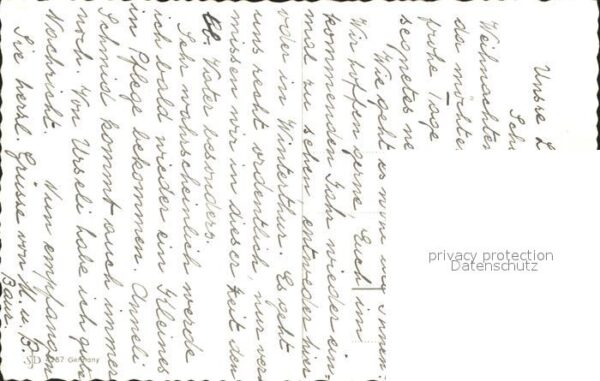 Unsre L
Sch
Weihnachten
du möchte
frohe Tage
segnetes ne
Wie geht es wohl Ihnen?
Wir hoffen gerne, Euch im
kommenden Jahr wieder ein-
mal zu sehen, entweder hier
oder in Winterthur. Es geht
uns recht ordentlich, nur ver-
missen wir in dieser Zeit den
lb. Vater besonders.
Sehr wahrscheinlich werde
ich bald wieder ein Kleines
in Pflege bekommen. Anneli
Schmid kommt auch immer
noch. Von Urseli habe ich gute
Nachricht. Nun empfangen
Sie herzl. Grüsse von M. u. B.
Baur
Germany
privacy protection
Datenschutz